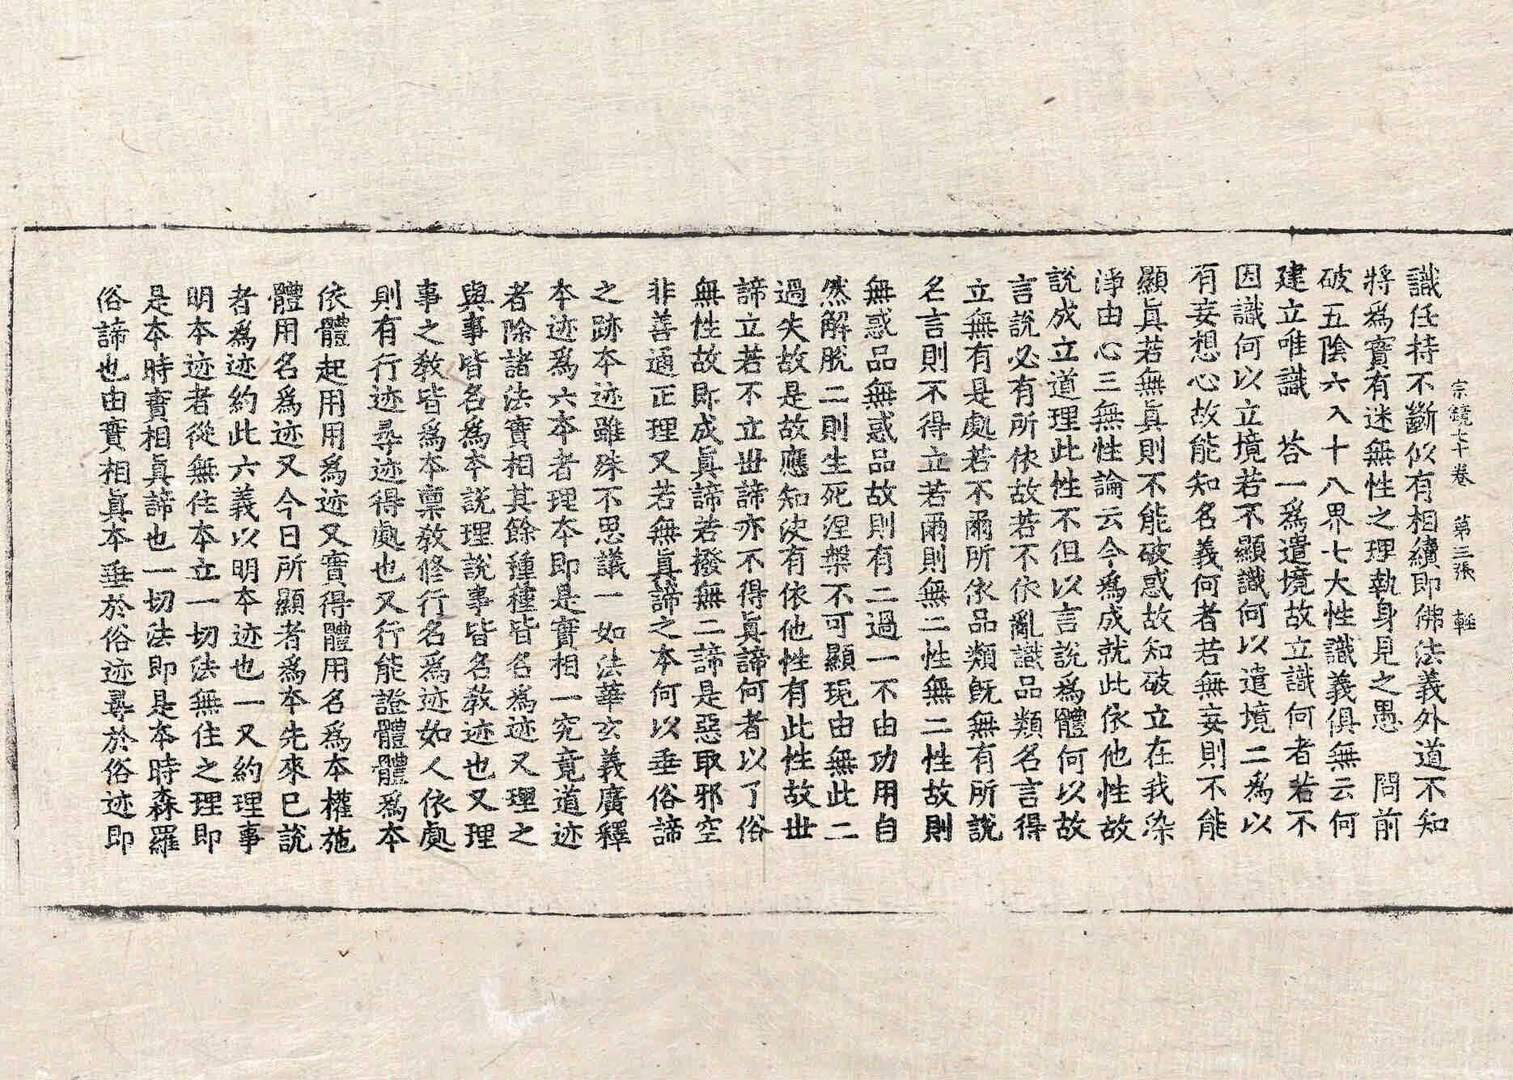 識任持不斷似有相續即佛法義外道不知
宗鏡七十卷　第三張　輕
將爲實有迷無性之理執身見之愚　問前
破五陰六入十八界七大性識義俱無云何
建立唯識　荅一爲遣境故立識何者若不
因識何以立境若不顯識何以遣境二爲以
有妄想心故能知名義何者若無妄則不能
顯眞若無眞則不能破惑故知破立在我染
淨由心三無性論云今爲成就此依他性故
說成立道理此性不但以言說爲體何以故
言說必有所依故若不依亂識品類名言得
立無有是處若不爾所依品類旣無有所說
名言則不得立若爾則無二性無二性故則
無惑品無惑品故則有二過一不由功用自
然解脫二則生死涅槃不可顯現由無此二
過失故是故應知決有依他性有此性故世
諦立若不立世諦亦不得眞諦何者以了俗
無性故即成眞諦若撥無二諦是惡取邪空
非善通正理又若無眞諦之本何以垂俗諦
之跡本迹雖殊不思議一如法華玄義廣釋
本迹爲六本者理本即是實相一究竟道迹
者除諸法實相其餘種種皆名爲迹又理之
與事皆名爲本說理說事皆名敎迹也又理
事之敎皆爲本禀敎修行名爲迹如人依處
則有行迹尋迹得處也又行能證體體爲本
依體起用用爲迹又實得體用名爲本權施
體用名爲迹又今日所顯者爲本先來已說
者爲迹約此六義以明本迹也一又約理事
明本迹者從無住本立一切法無住之理即
是本時實相眞諦也一切法即是本時森羅
俗諦也由實相眞本垂於俗迹尋於俗迹即